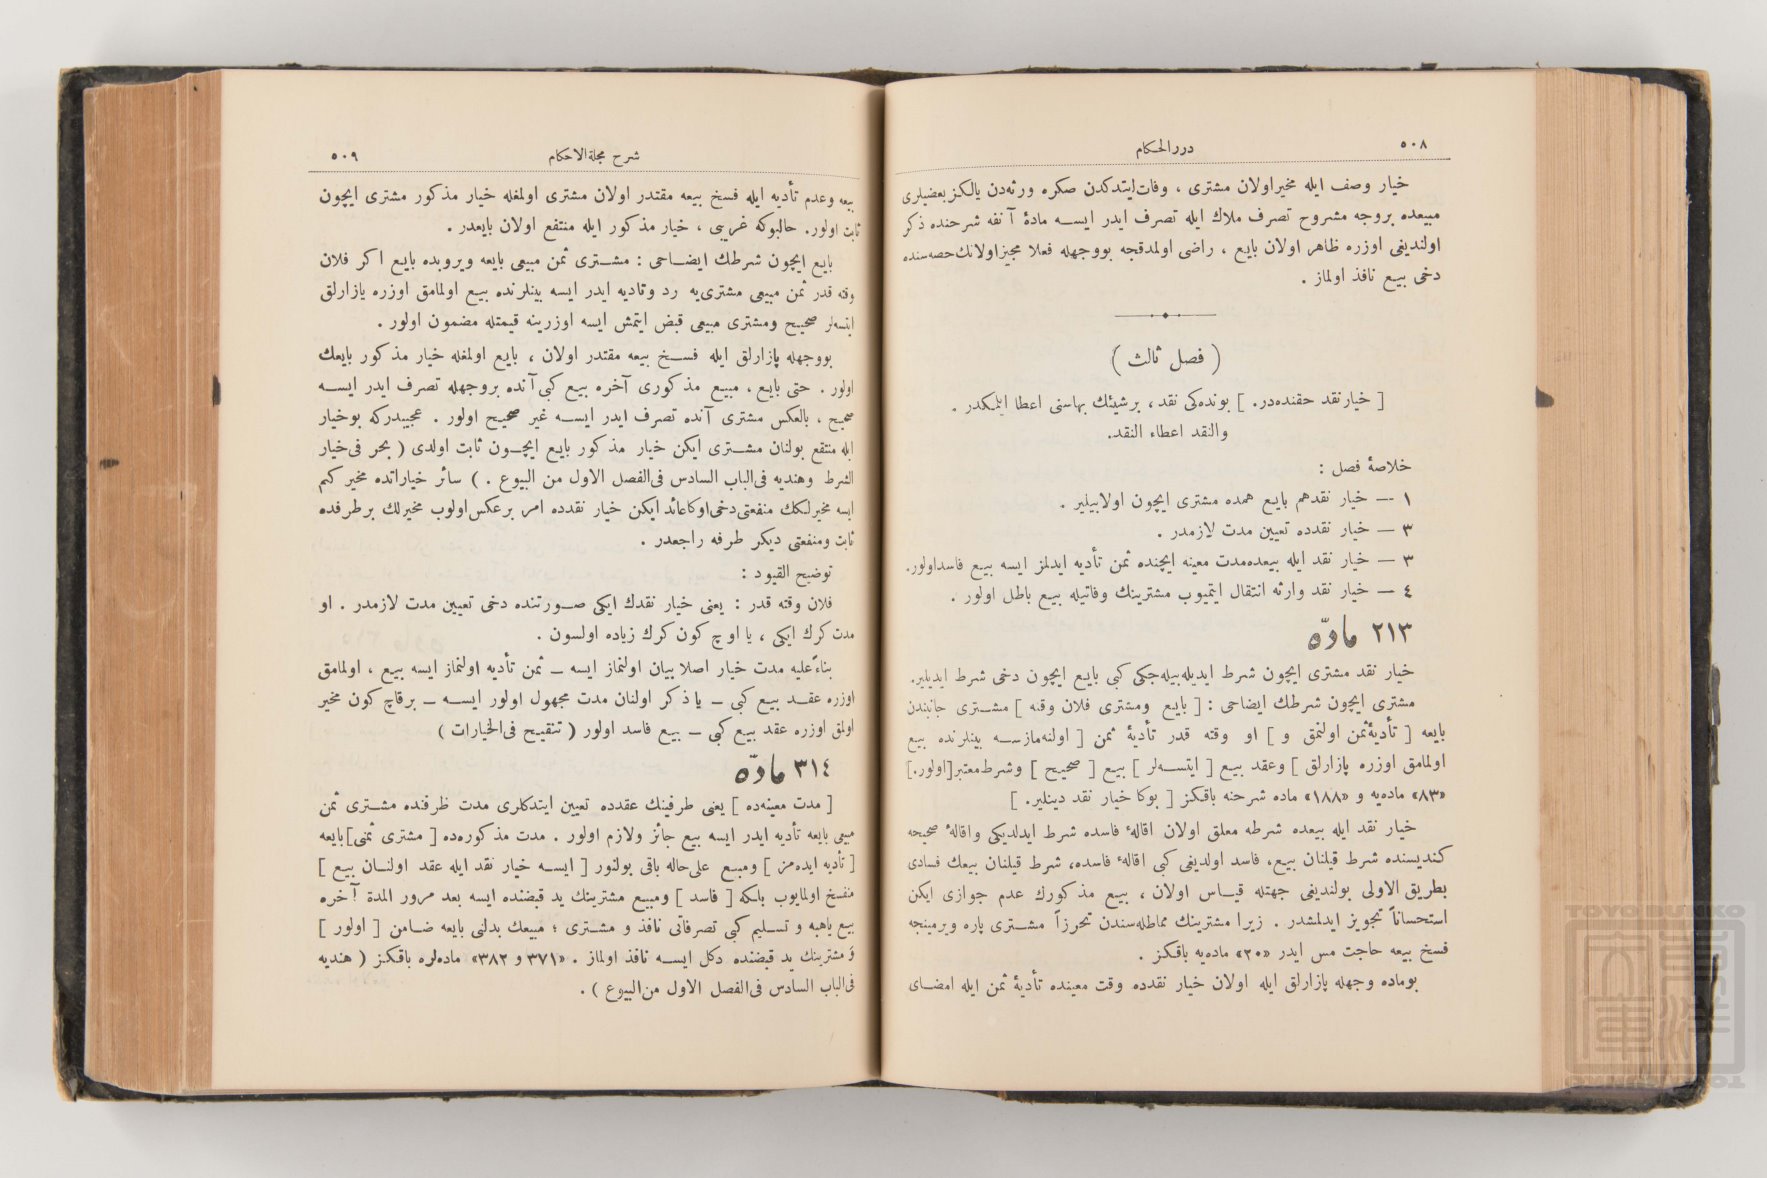 ٥٠٨
دررالحكام
خيار وصف ايله مخيراولان مشترى ، وفات‌ايتدكدن صكره ورثه‌دن يالكز بعضيلرى
مبيعده بروجه مشروح تصرف ملاك ايله تصرف ايدر ايسه مادۀ آنفه شرحنده ذكر
اولنديغى اوزره ظاهر اولان بايع ، راضى اولمدقجه بووجهله فعلا مجيزاولانك حصه‌سنده
دخى بيع نافذ اولماز .
( فصل ثالث )
[ خيارنقد حقنده‌در. ] بونده‌كى نقد ، برشيئك بهاسنى اعطا ايلمكدر .
والنقد اعطاء النقد.
خلاصۀ فصل :
١ — خيار نقدهم بايع همده مشترى ايچون اولابيلير .
٣ — خيار نقدده تعيين مدت لازمدر .
٣ — خيار نقد ايله بيعده‌مدت معينه ايچنده ثمن تأديه ايدلمز ايسه بيع فاسداولور.
٤ — خيار نقد وارثه انتقال ايتميوب مشترينك وفاتيله بيع باطل اولور .
٢١٣ مادّه
خيار نقد مشترى ايچون شرط ايديله‌بيله‌جكى كبى بايع ايچون دخى شرط ايديلير.
مشترى ايچون شرطك ايضاحى : [ بايع ومشترى فلان وقته ] مشترى جانبندن
بايعه [ تأديۀ‌ثمن اولنمق و ] او وقته قدر تأديۀ ثمن [ اولنه‌مازسه بينلرنده بيع
اولمامق اوزره پازارلق ] وعقد بيع [ ايتسه‌لر ] بيع [ صحيح ] وشرط‌معتبر[اولور.]
«٨٣» ماده‌يه و «١٨٨» ماده شرحنه باقكز [ بوكا خيار نقد دينلير. ]
خيار نقد ايله بيعده شرطه معلق اولان اقالۀ فاسده شرط ايدلديكى واقالۀ صحيحه
كنديسنده شرط قيلنان بيع، فاسد اولديغى كبى اقالۀ فاسده، شرط قيلنان بيعك فسادى
بطريق الاولى بولنديغى جهتله قياس اولان ، بيع مذكورك عدم جوازى ايكن
استحساناً تجويز ايدلمشدر . زيرا مشترينك مماطله‌سندن تحرزاً مشترى پاره ويرمينجه
فسخ بيعه حاجت مس ايدر «٣٠» ماده‌يه باقكز .
بوماده وجهله پازارلق ايله اولان خيار نقدده وقت معينده تأديۀ ثمن ايله امضاى
شرح مجلةالاحكام
٥٠٩
بيعه وعدم تأديه ايله فسخ بيعه مقتدر اولان مشترى اولمغله خيار مذكور مشترى ايچون
ثابت اولور. حالبوكه غريبى ، خيار مذكور ايله منتفع اولان بايعدر .
بايع ايچون شرطك ايضاحى : مشترى ثمن مبيعى بايعه ويروبده بايع اكر فلان
وقته قدر ثمن مبيعى مشترى‌يه رد وتاديه ايدر ايسه بينلرنده بيع اولمامق اوزره يازارلق
ايتسه‌لر صحيح ومشترى مبيعى قبض ايتمش ايسه اوزرينه قيمتله مضمون اولور .
بووجهله پازارلق ايله فسخ بيعه مقتدر اولان ، بايع اولمغله خيار مذكور بايعك
اولور . حتى بايع ، مبيع مذكورى آخره بيع كبى آنده بروجهله تصرف ايدر ايسه
صحيح ، بالعكس مشترى آنده تصرف ايدر ايسه غير صحيح اولور . عجبيدركه بوخيار
ايله منتفع بولنان مشترى ايكن خيار مذكور بايع ايچون ثابت اولدى ( بحر فى‌خيار
الشرط وهنديه فى‌الباب السادس فى‌الفصل الاول من البيوع . ) سائر خياراتده مخير كم
ايسه مخيرلككك منفعتى‌دخى‌اوكاعائد ايكن خيار نقدده امر برعكس‌اولوب مخيرلك برطرفده
ثابت ومنفعتى ديكر طرفه راجعدر .
توضيح القيود :
فلان وقته قدر : يعنى خيار نقدك ايكى صورتنده دخى تعيين مدت لازمدر . او
مدت كرك ايكى ، يا اوچ كون كرك زياده اولسون .
بناءًعليه مدت خيار اصلا بيان اولنماز ايسه — ثمن تأديه اولنماز ايسه بيع ، اولمامق
اوزره عقد بيع كبى — ياذكر اولنان مدت مجهول اولور ايسه — برقاچ كون مخير
اولمق اوزره عقد بيع كبى — بيع فاسد اولور ( تنقيح فى‌الخيارات )
٣١٤ مادّه
[ مدت معينه‌ده ] يعنى طرفينك عقدده تعيين ايتدكلرى مدت ظرفنده مشترى ثمن
مبيعى بايعه تأديه ايدر ايسه بيع جائز ولازم اولور . مدت مذكوره‌ده [ مشترى ثمنى]بايعه
[ تأديه ايده‌مز ] ومبيع على‌حاله باقى بولنور [ ايسه خيار نقد ايله عقد اولنان بيع ]
منفسخ اولمايوب بلكه [ فاسد ] ومبيع مشترينك يد قبضنده ايسه بعد مرور المدة آخره
بيع ياهبه و تسليم كبى تصرفاتى نافذ و مشترى ؛ مبيعك بدلنى بايعه ضامن [ اولور ]
و مشترينك يد قبضنده دكل ايسه نافذ اولماز . «٣٧١ و ٣٨٢» ماده‌لره باقكز ( هنديه
فى‌الباب السادس فى‌الفصل الاول من‌البيوع ) .
TOYO BUNKO